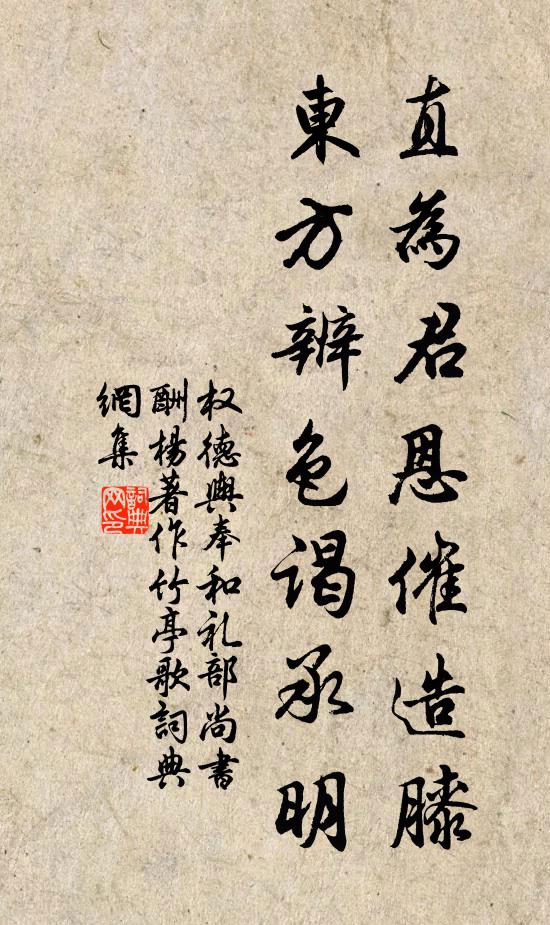 直為君恩催造膝
東方辨色謁承明
权德輿奉和礼部尚書
酬楊著作竹亭歌詞典
網集
詞典網印